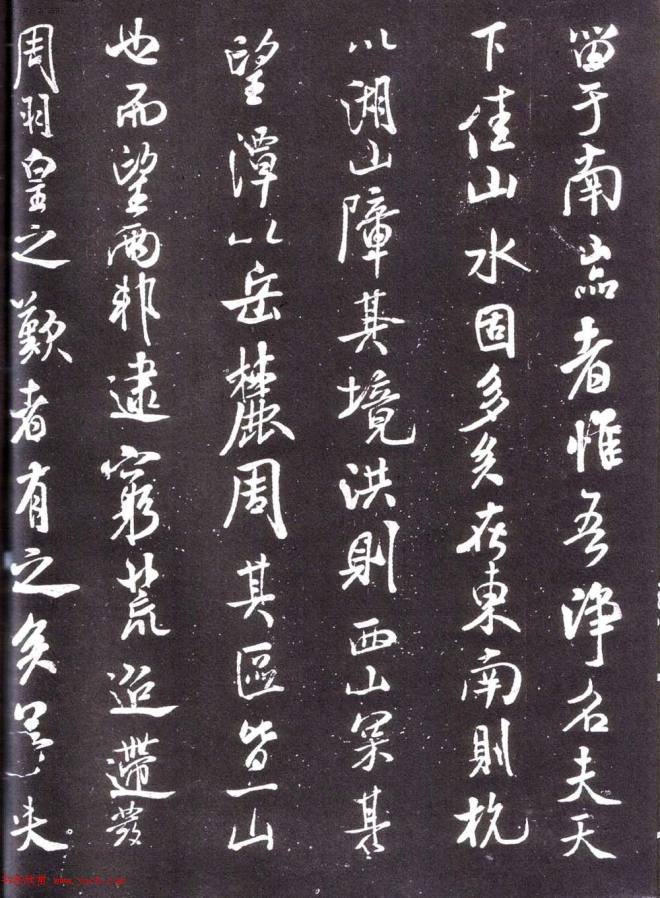 留于南嵒者惟吾淨名夫天
下佳山水固多矣在東南則杭
以湖山障其境洪則西山其
望潭以岳麓周其區皆一山
也而望兩邦逮窮荒遰發
周羽皇之歎者有之矣若夫
www.yac8.com